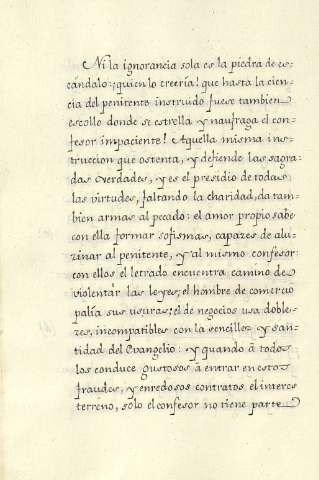 Ni la ignorancia sola es la piedra de es-
cándalo: ¡quien lo creería! que hasta la cien-
cia del penitente instruido fuese tambien
escollo donde se estrella y naufraga el con-
fesor impaciente! Aquella misma ins-
truccion que ostenta, y defiende las sagra-
das verdades, y es el presidio de todas
las virtudes, faltando la charidad, da tam-
bien armas al pecado: el amor propio sabe
con ella formar sofismas, capazes de alu-
zinar al penitente, y al mismo confesor:
con ellos el letrado encuentra camino de
violentar las leyes; el hombre de comercio
palía sus usuras; el de negocios usa doble-
zes, incompatibles con la sencillez y san-
tidad del Evangelio: y quando à todos
los conduce gustosos à entrar en estos
fraudes, y enredosos contratos el interes
terreno, solo el confesor no tiene parte